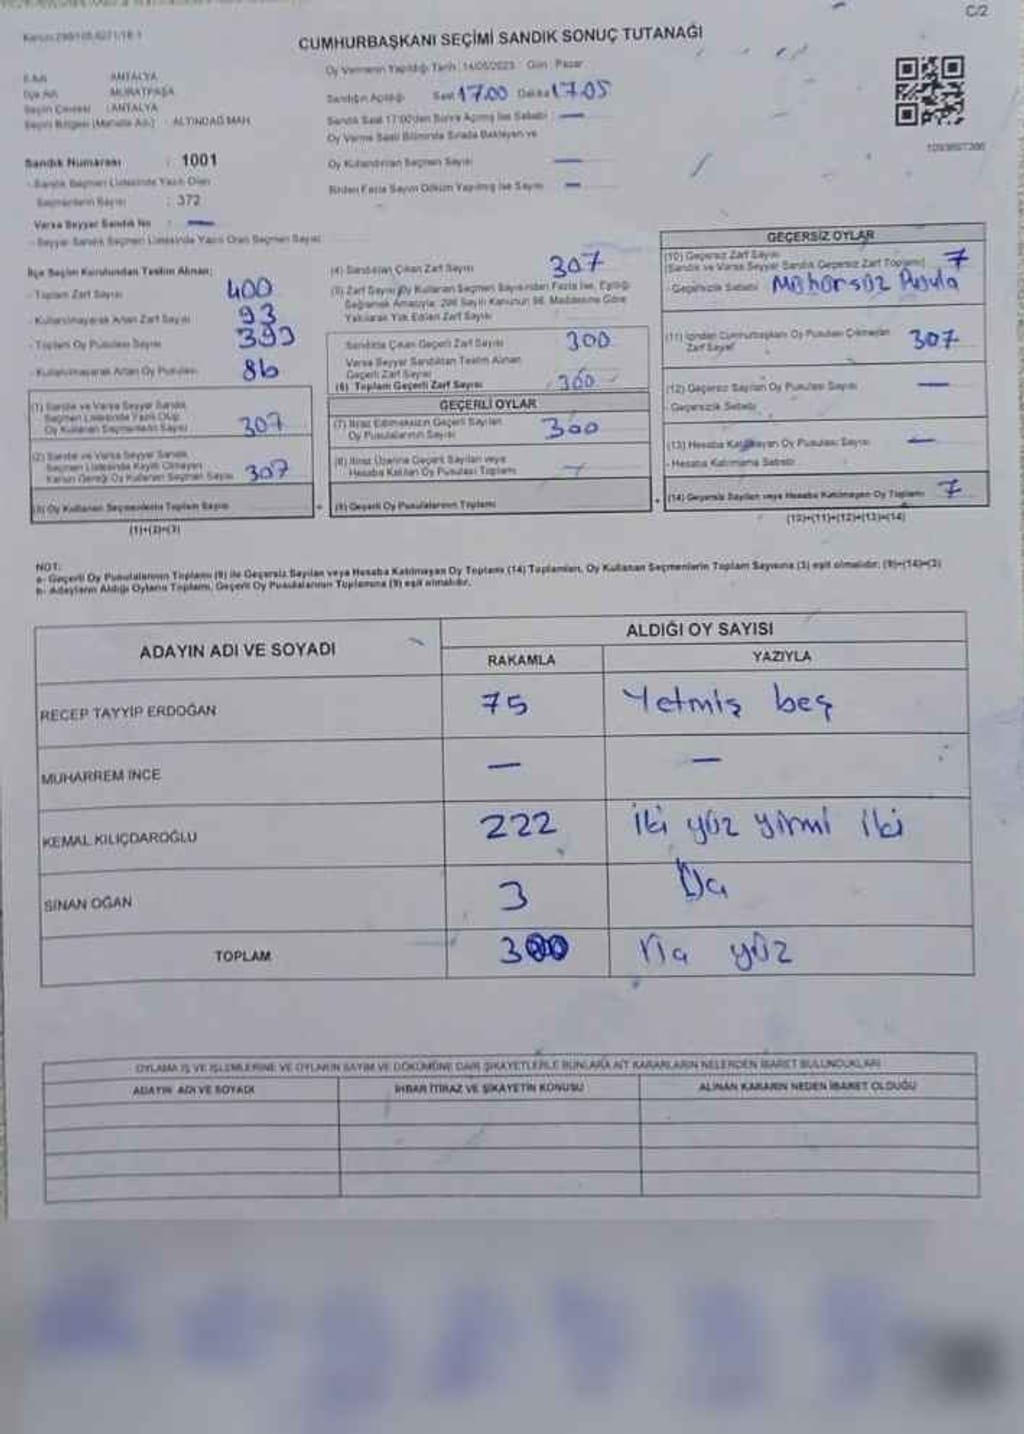 C/2
CUMHURBAŞKANI SEÇİMİ SANDIK SONUÇ TUTANAĞI
Oy Vermenin Yapıldığı Tarih : 14/05/2023 Gün : Pazar
İl Adı : ANTALYA
İlçe Adı : MURATPAŞA
Seçim Çevresi : ANTALYA
Seçim Bölgesi (Mahalle Adı) : ALTINDAĞ MAH.
Sandığın Açıldığı Saat 17.00 Dakika 17.05
Sandık Saat 17:00'den Sonra Açılmış İse Sebebi : —
Oy Verme Saati Bitiminde Sırada Bekleyen ve
Oy Kullandırılan Seçmen Sayısı —
Birden Fazla Sayım Döküm Yapılmış İse Sayısı —
Sandık Numarası : 1001
- Sandık Seçmen Listesinde Yazılı Olan
Seçmenlerin Sayısı : 372
Varsa Seyyar Sandık No : —
- Seyyar Sandık Seçmen Listesinde Yazılı Olan Seçmen Sayısı
İlçe Seçim Kurulundan Teslim Alınan;
- Toplam Zarf Sayısı 400
- Kullanılmayarak Artan Zarf Sayısı 93
- Toplam Oy Pusulası Sayısı 393
- Kullanılmayarak Artan Oy Pusulası 86
(1) Sandık ve Varsa Seyyar Sandık
Seçmen Listesinde Yazılı Olup
Oy Kullanan Seçmenlerin Sayısı 307
(2) Sandık ve Varsa Seyyar Sandık
Seçmen Listesinde Kayıtlı Olmayan
Kanun Gereği Oy Kullanan Seçmen Sayısı 307
(3) Oy Kullanan Seçmenlerin Toplam Sayısı
(1)+(2)=(3)
(4) Sandıktan Çıkan Zarf Sayısı 307
(5) Zarf Sayısı Oy Kullanan Seçmen Sayısından Fazla İse, Eşitliği
Sağlamak Amacıyla; 298 Sayılı Kanunun 98. Maddesine Göre
Yakılarak Yok Edilen Zarf Sayısı
Sandıkta Çıkan Geçerli Zarf Sayısı 300
Varsa Seyyar Sandıktan Teslim Alınan
Geçerli Zarf Sayısı
(6) Toplam Geçerli Zarf Sayısı 300
GEÇERLİ OYLAR
(7) İtiraz Edilmeksizin Geçerli Sayılan
Oy Pusulalarının Sayısı 300
(8) İtiraz Üzerine Geçerli Sayılan veya
Hesaba Katılan Oy Pusulası Toplamı
(9) Geçerli Oy Pusulalarının Toplamı
GEÇERSİZ OYLAR
(10) Geçersiz Zarf Sayısı
(Sandık ve Varsa Seyyar Sandık Geçersiz Zarf Toplamı) 7
- Geçersizlik Sebebi Mühürsüz Pusula
(11) İçinden Cumhurbaşkanı Oy Pusulası Çıkmayan
Zarf Sayısı 307
(12) Geçersiz Sayılan Oy Pusulası Sayısı —
- Geçersizlik Sebebi
(13) Hesaba Katılmayan Oy Pusulası Sayısı —
- Hesaba Katılmama Sebebi
(14) Geçersiz Sayılan veya Hesaba Katılmayan Oy Toplamı 7
(10)+(11)+(12)+(13)=(14)
NOT:
a- Geçerli Oy Pusulalarının Toplamı (9) ile Geçersiz Sayılan veya Hesaba Katılmayan Oy Toplamı (14) Toplamları, Oy Kullanan Seçmenlerin Toplam Sayısına (3) eşit olmalıdır. (9)+(14)=(3)
b- Adayların Aldığı Oyların Toplamı, Geçerli Oy Pusulalarının Toplamına (9) eşit olmalıdır.
ADAYIN ADI VE SOYADI ALDIĞI OY SAYISI
RAKAMLA YAZIYLA
RECEP TAYYİP ERDOĞAN 75 Yetmiş beş
MUHARREM İNCE — —
KEMAL KILIÇDAROĞLU 222 İki yüz yirmi iki
SİNAN OĞAN 3 Üç
TOPLAM 300 Üç yüz
OYLAMA İŞ VE İŞLEMLERİNE VE OYLARIN SAYIM VE DÖKÜMÜNE DAİR ŞİKAYETLERLE BUNLARA AİT KARARLARIN NELERDEN İBARET BULUNDUKLARI
ADAYIN ADI VE SOYADI İHBAR İTİRAZ VE ŞİKAYETİN KONUSU ALINAN KARARIN NEDEN İBARET OLDUĞU